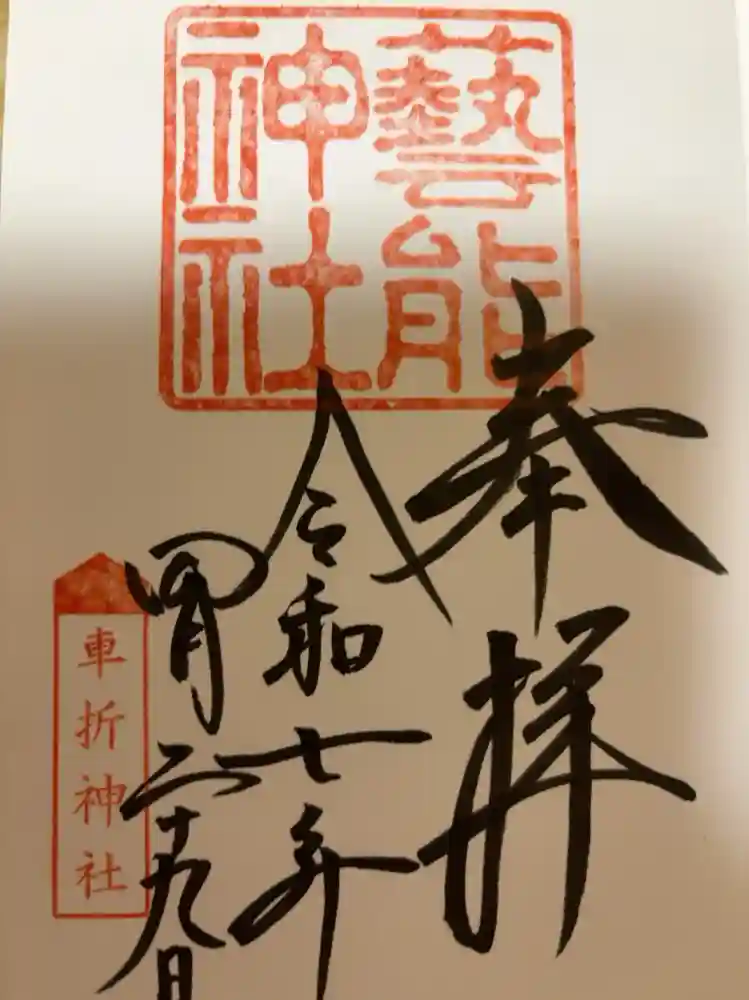 藝能
神社
奉拝
令和七年
四月二十九日
車折神社